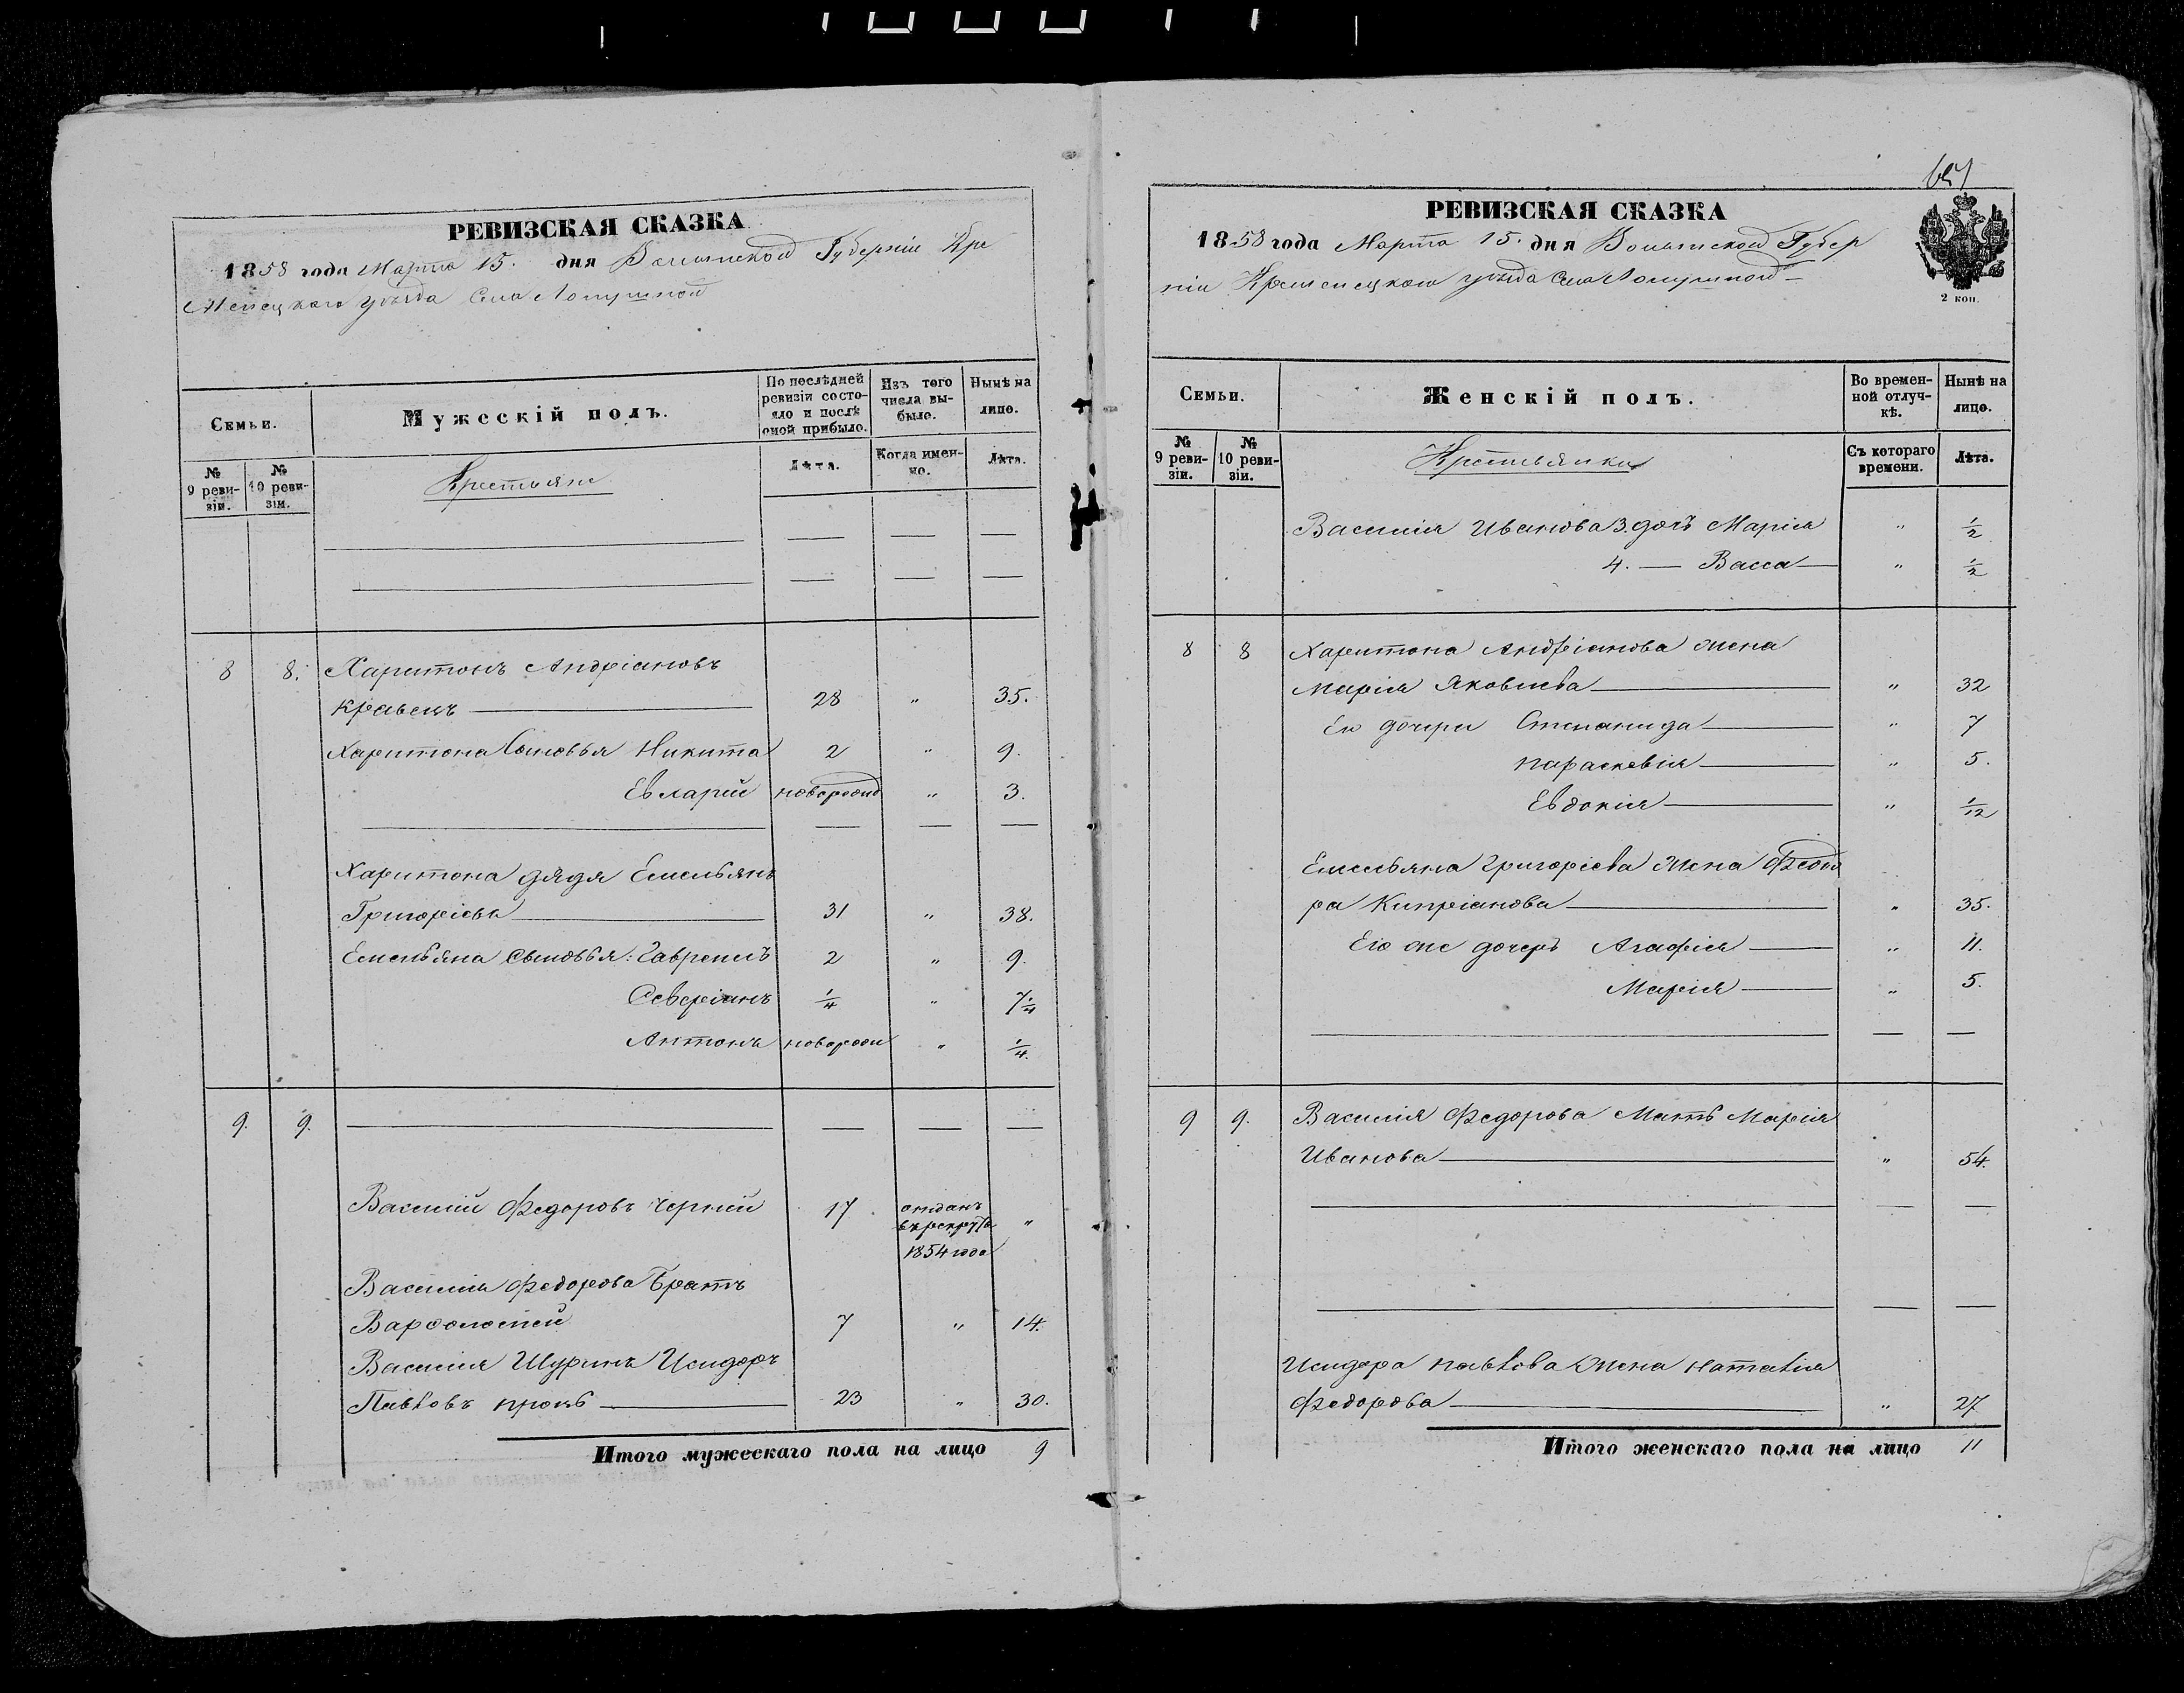 РЕВИЗСКАЯ СКАЗКА
1858 года Марта 15. дня Волынской Губерніи Кре
менецкаго уѣзда Села Лопушной
Семьи.
Мужескій полъ.
По послѣдней ревизіи состояло и послѣ оной прибыло.
Изъ того числа выбыло.
Нынѣ на лицо.
№ 9 ревизіи.
№ 10 ревизіи.
Крестьяне
Лѣта.
Когда именно.
Лѣта.
8 8. Харитонъ Андріановъ
Кравецъ 28 " 35.
Харитона Сыновья Никита 2 " 9.
Евларій новорожд " 3.
Харитона дядя Емельянъ
Григоріевъ 31 " 38.
Емельяна сыновья: Гаврилъ 2 " 9.
Северіанъ 1/4 " 7 1/4
Антонъ новорожд " 1/4.
9. 9.
Василій Федоровъ Черній 17 отданъ
въ рекруты "
1854 года
Василія Федорова Братъ
Варфоломей 7 " 14.
Василія Шуринъ Исидоръ
Павловъ 23 " 30.
Итого мужескаго пола на лицо 9
РЕВИЗСКАЯ СКАЗКА
1858 года Марта 15. дня Волынской Губер
ніи Кременецкаго уѣзда Села Лопушной
2 коп.
Семьи.
Женскій полъ.
Во временной отлучкѣ.
Нынѣ на лицо.
№ 9 ревизіи.
№ 10 ревизіи.
Крестьянки
Съ котораго времени.
Лѣта.
Василія Иванова 3. дочь Марія " 1/2
4. — Васса " 1/2
8 8 Харитона Андріанова жена
Марія Яковлева " 32
Его дочери Степанида " 7
Параскевія " 5.
Евдокія " 1/12
Емельяна Григоріева жена Феодо
ра Кипріанова " 35.
Его же дочери Агафія " 11.
Марія " 5.
9 9. Василія Федорова Мать Марія
Иванова " 54.
Исидора Павлова жена Наталія
Федорова " 27
Итого женскаго пола на лицо 11